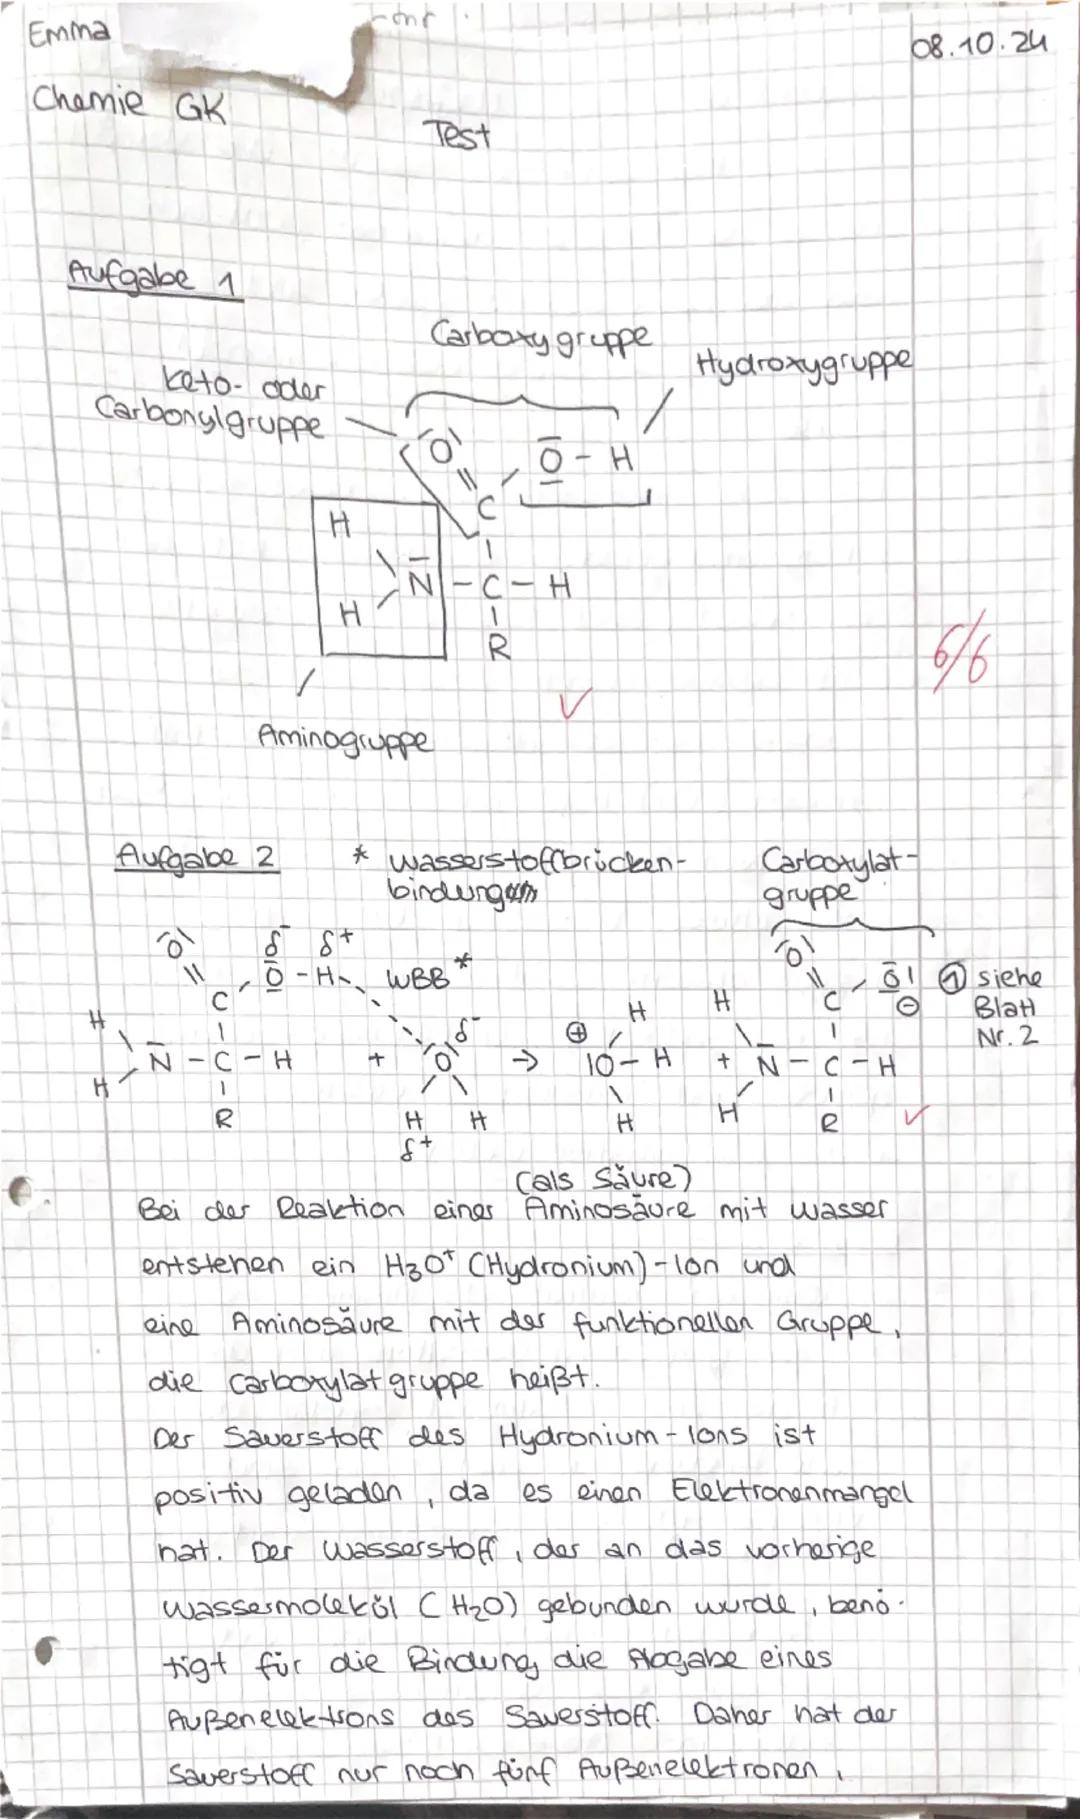 Emma
08.10.24
Chemie GK
Test
Aufgabe 1
Carboxygruppe
Hydroxygruppe
Keto- oder
Carbonylgruppe
O
O - H
C
H
N - C - H
H
R
6/6
Aminogruppe
Aufgabe 2
* Wasserstoffbrücken-
bindung
Carboxylat-
gruppe
δ- δ+
O
O - H
WBB *
O
O ⊖
① siehe
Blatt
Nr. 2
C
H
H
C
H
δ-
⊕
N - C - H + O → O - H + N - C - H
H
R
H H
δ+
H
H
R
(als Säure)
Bei der Reaktion einer Aminosäure mit Wasser
entstehen ein H3O+ (Hydronium)-Ion und
eine Aminosäure mit der funktionellen Gruppe,
die Carboxylatgruppe heißt.
Der Sauerstoff des Hydronium-Ions ist
positiv geladen, da es einen Elektronenmangel
hat. Der Wasserstoff, der an das vorherige
Wassermolekül (H2O) gebunden wurde, benö-
tigt für die Bindung die Abgabe eines
Außenelektrons des Sauerstoff. Daher hat der
Sauerstoff nur noch fünf Außenelektronen,